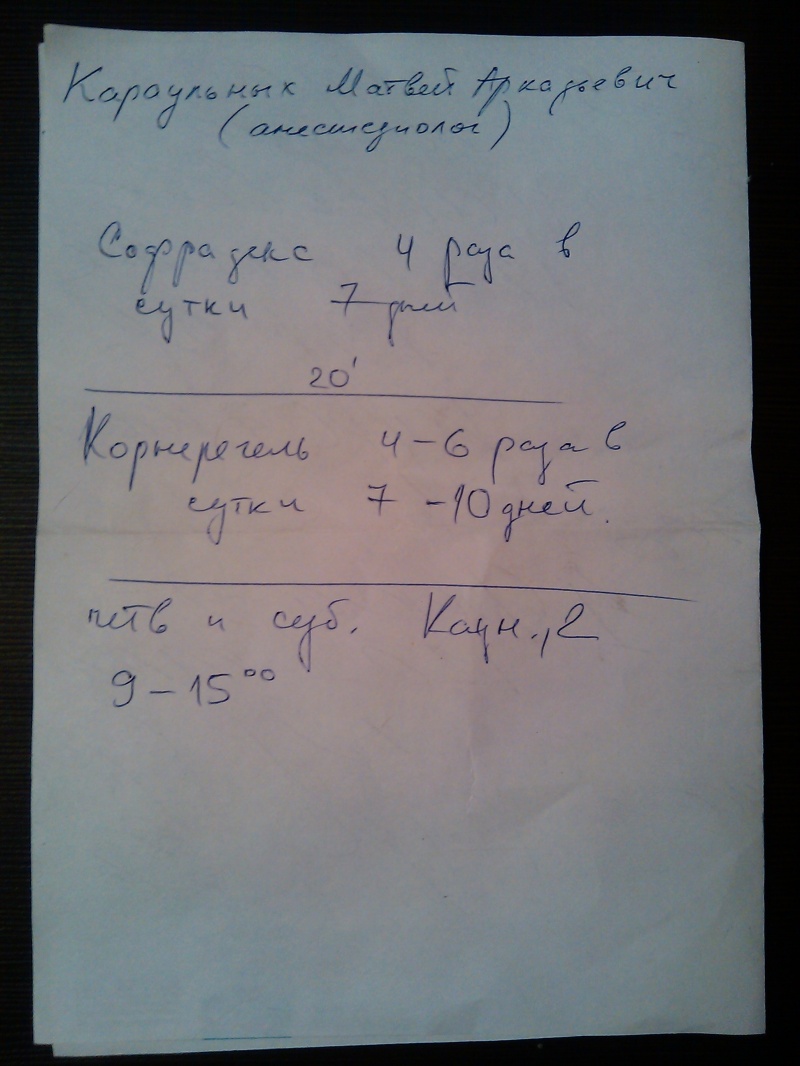 Караульных Матвей Аркадьевич
(анестезиолог)
Софрадекс 4 раза в
сутки 7 дней
20'
Корнерегель 4-6 раза в
сутки 7-10 дней.
и суб. 2
9-15⁰⁰